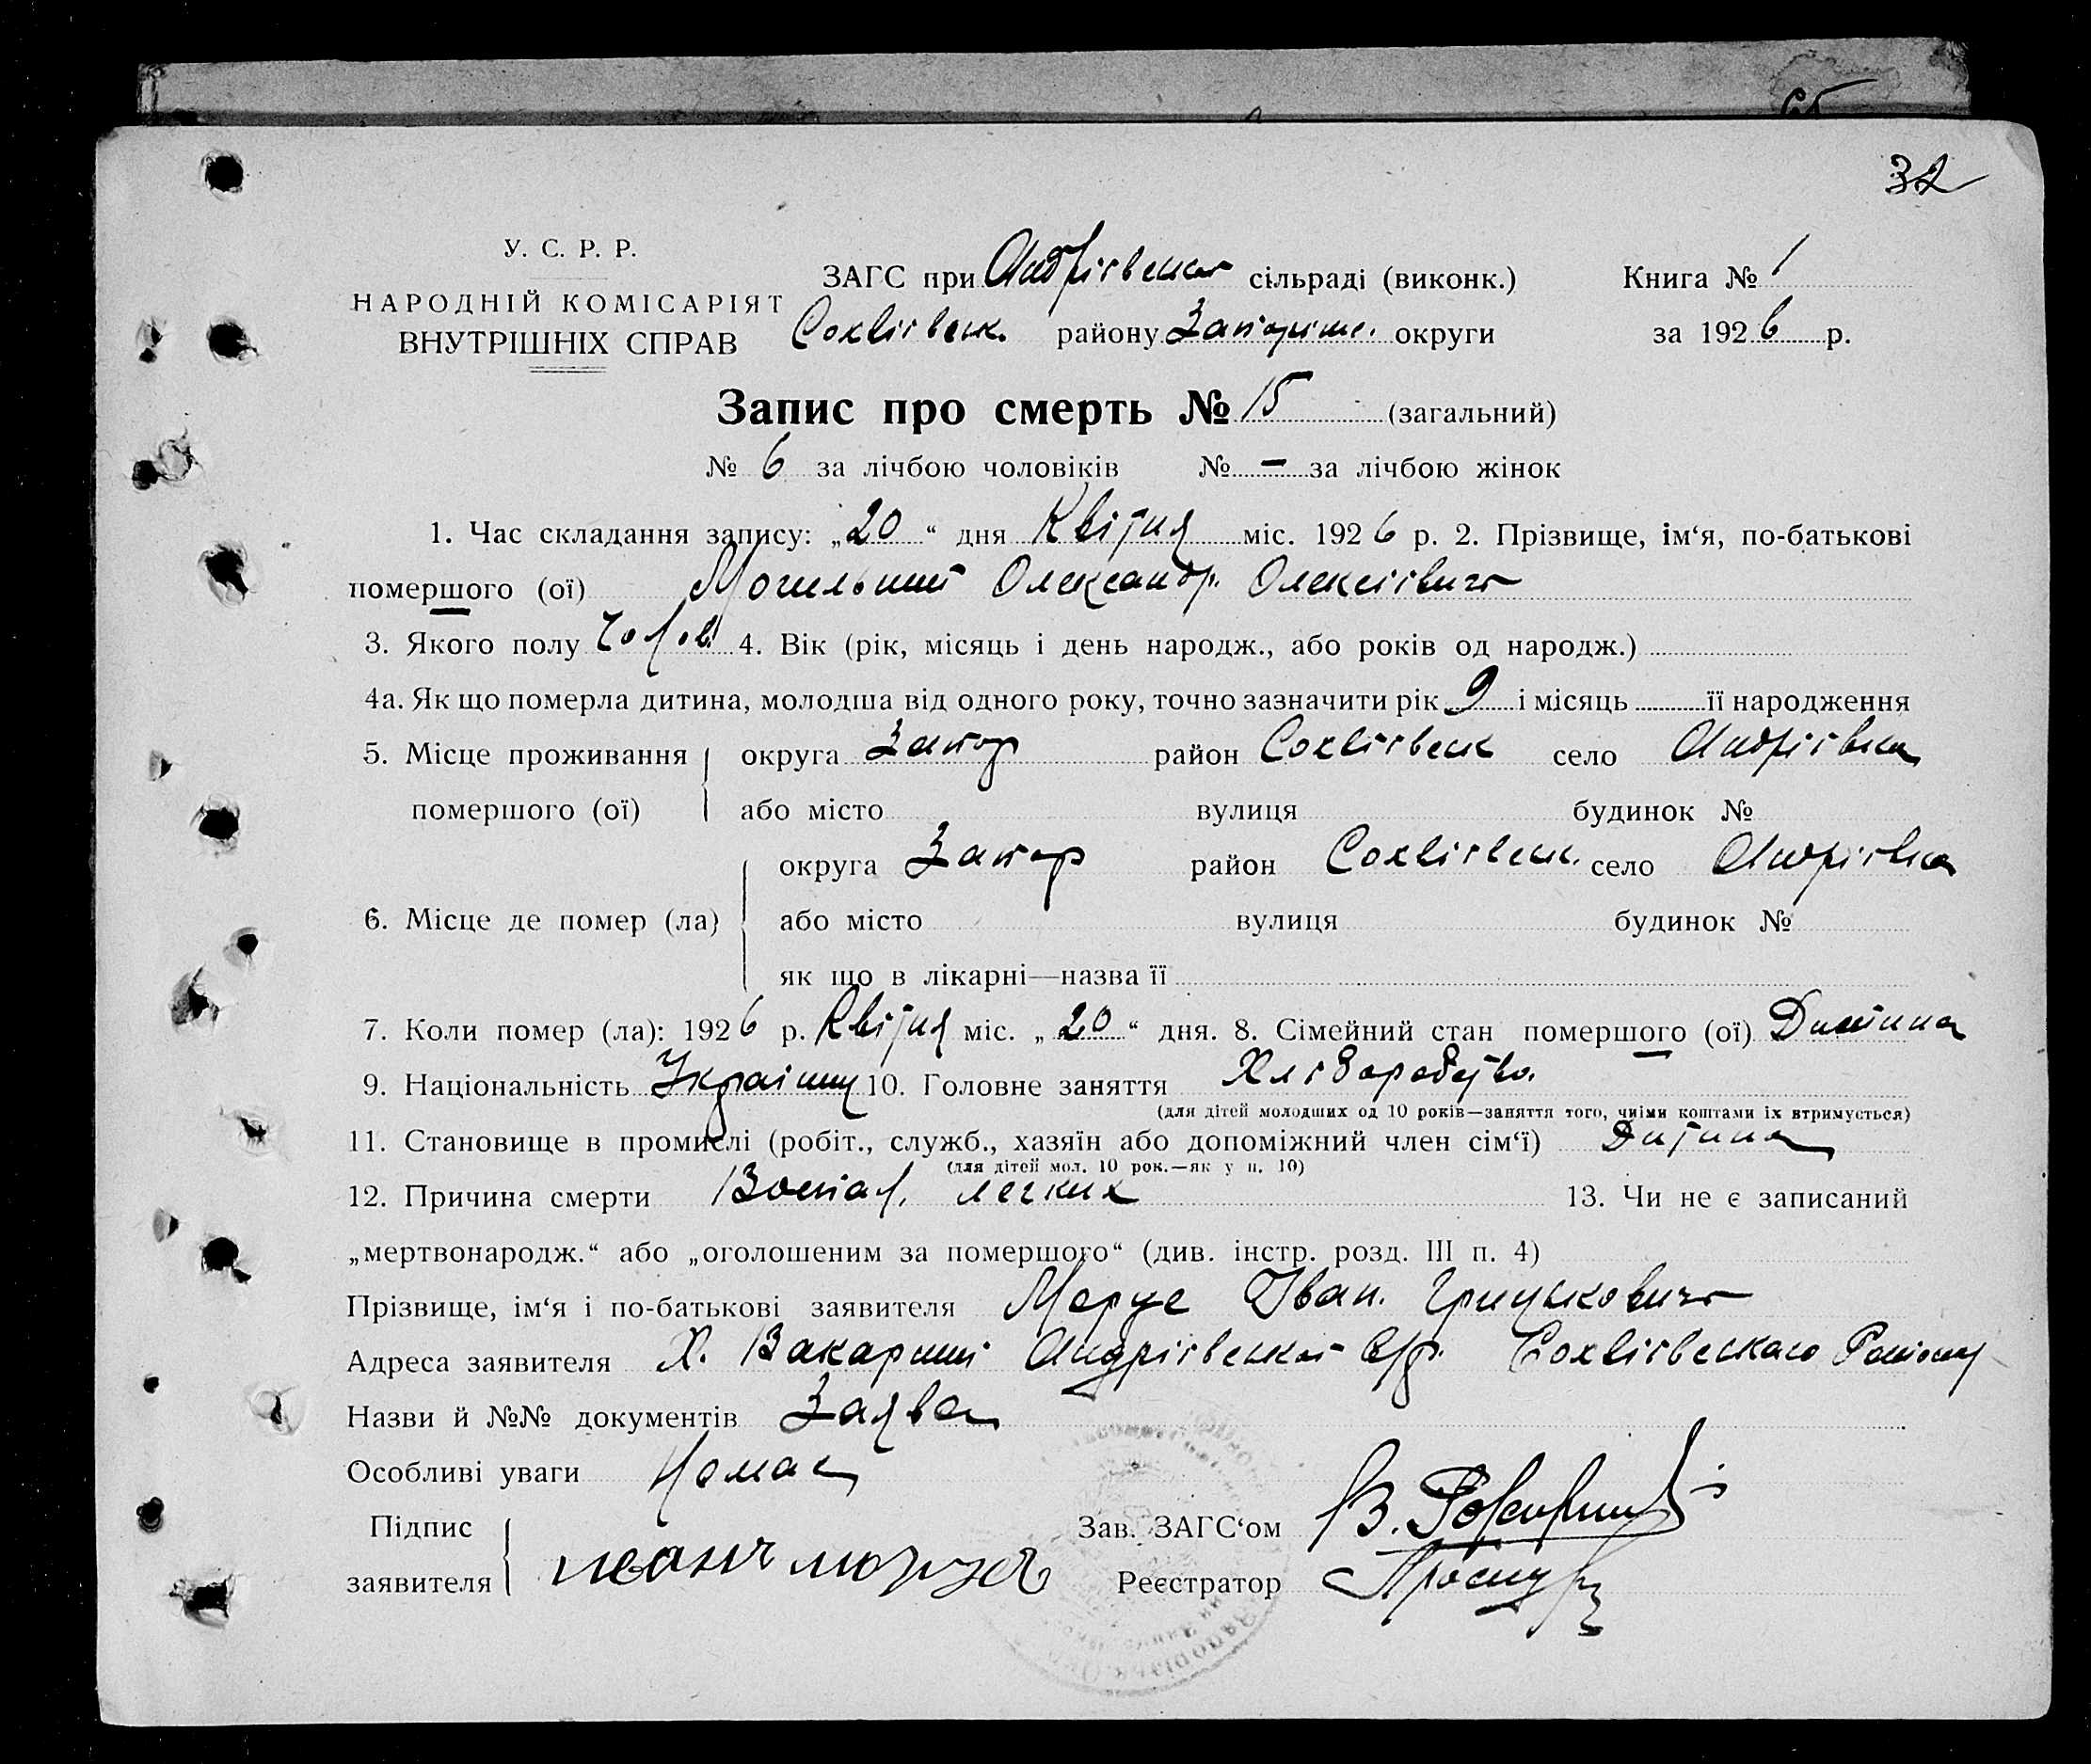 32
У. С. Р. Р.
НАРОДНІЙ КОМІСАРІЯТ
ВНУТРІШНІХ СПРАВ
ЗАГС при Андріївській сільраді (виконк.) Книга № 1
Софіївськ. району Запоріж. округи за 1926 р.
Запис про смерть № 15 (загальний)
№ 6 за лічбою чоловіків № — за лічбою жінок
1. Час складання запису: „20“ дня Квітня міс. 1926 р. 2. Прізвище, ім‘я, по-батькові
помершого (ої) Могильний Олександр. Олексієвич
3. Якого полу Чолов. 4. Вік (рік, місяць і день народж., або років од народж.)
4а. Як що померла дитина, молодша від одного року, точно зазначити рік 9 і місяць її народження
5. Місце проживання округа Запор район село Андрієвка
помершого (ої) або місто вулиця будинок №
округа Запор район село Андрієвка
6. Місце де помер (ла) або місто вулиця будинок №
як що в лікарні—назва її
7. Коли помер (ла): 1926 р. Квітня міс. „20“ дня. 8. Сімейний стан помершого (ої) Дитина
9. Національність Україн 10. Головне заняття Хліборобство.
(для дітей молодших од 10 років—заняття того, чиїми коштами їх втримується)
11. Становище в промислі (робіт., служб., хазяїн або допоміжний член сім‘ї) Дитина
(для дітей мол. 10 рок.—як у п. 10)
12. Причина смерти Воспал. легких 13. Чи не є записаний
„мертвонародж.“ або „оголошеним за помершого“ (див. інстр. розд. III п. 4)
Прізвище, ім‘я і по-батькові заявителя Іван. Грицькович
Адреса заявителя Х. Андрієвської с/р. Району
Назви й №№ документів Заява
Особливі уваги Немає
Підпис Зав. ЗАГС‘ом В.
заявителя Реєстратор